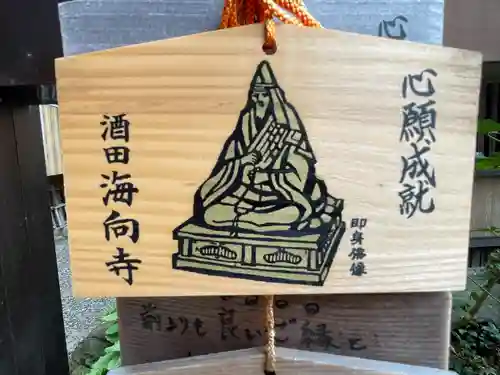 心願成就
即身佛像
酒田海向寺
より良いご縁と